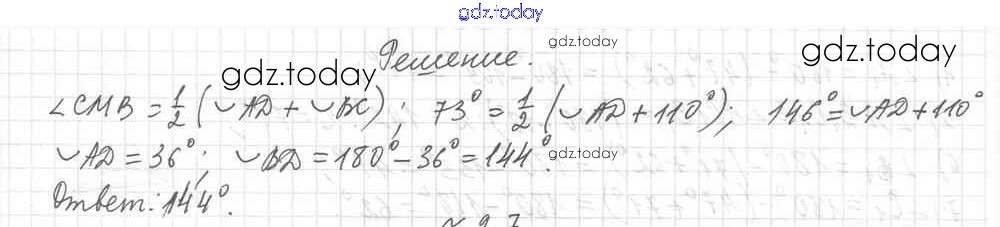 gdz.today
Решение.
gdz.today
gdz.today
gdz.today
∠CMB = 1/2 (◡AD + ◡BC); 73° = 1/2 (◡AD + 110°); 146° = ◡AD + 110°
◡AD = 36°; ◡BD = 180° - 36° = 144°.
gdz.today
Ответ: 144°.